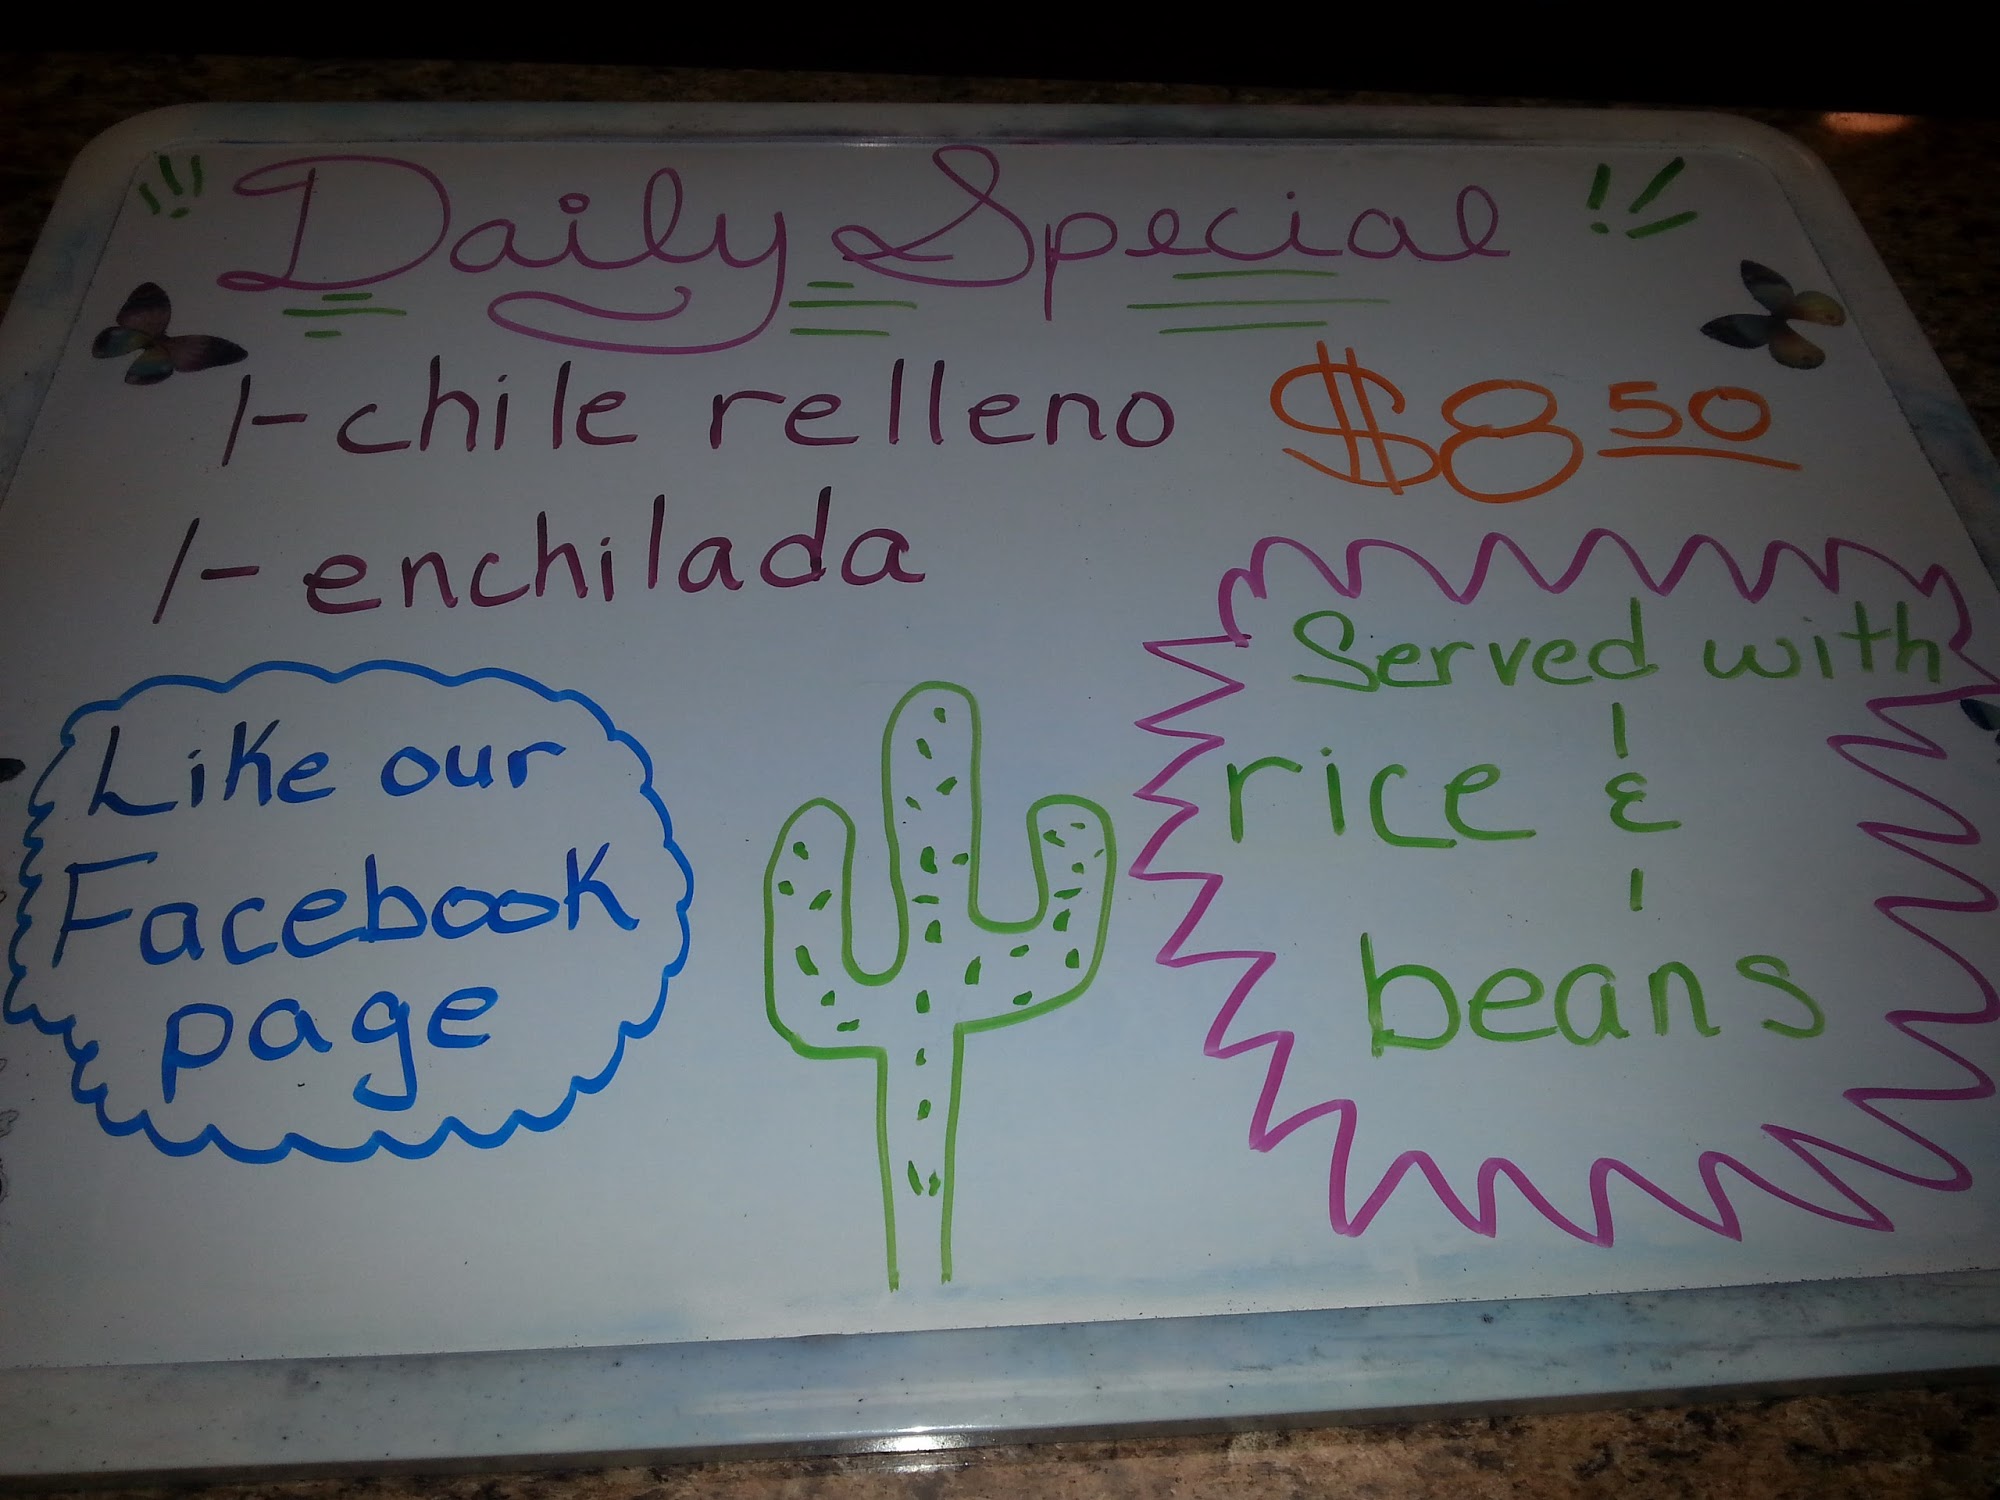 Daily Special
1-chile relleno $8 50
1-enchilada
Like our
Facebook
page
Served with
rice &
beans